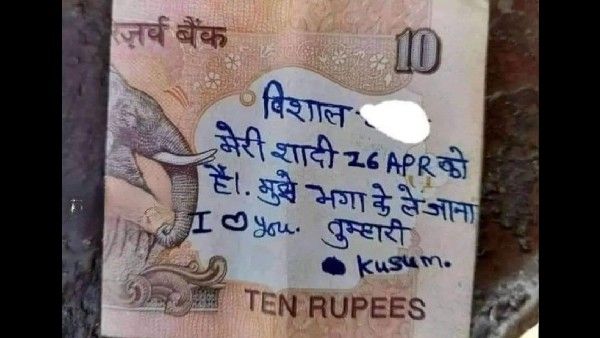 रिज़र्व बैंक
10
विशाल
मेरी शादी 26 APR को
है।. मुझे भगा के ले जाना
I ♡ you. तुम्हारी
Kusum.
TEN RUPEES